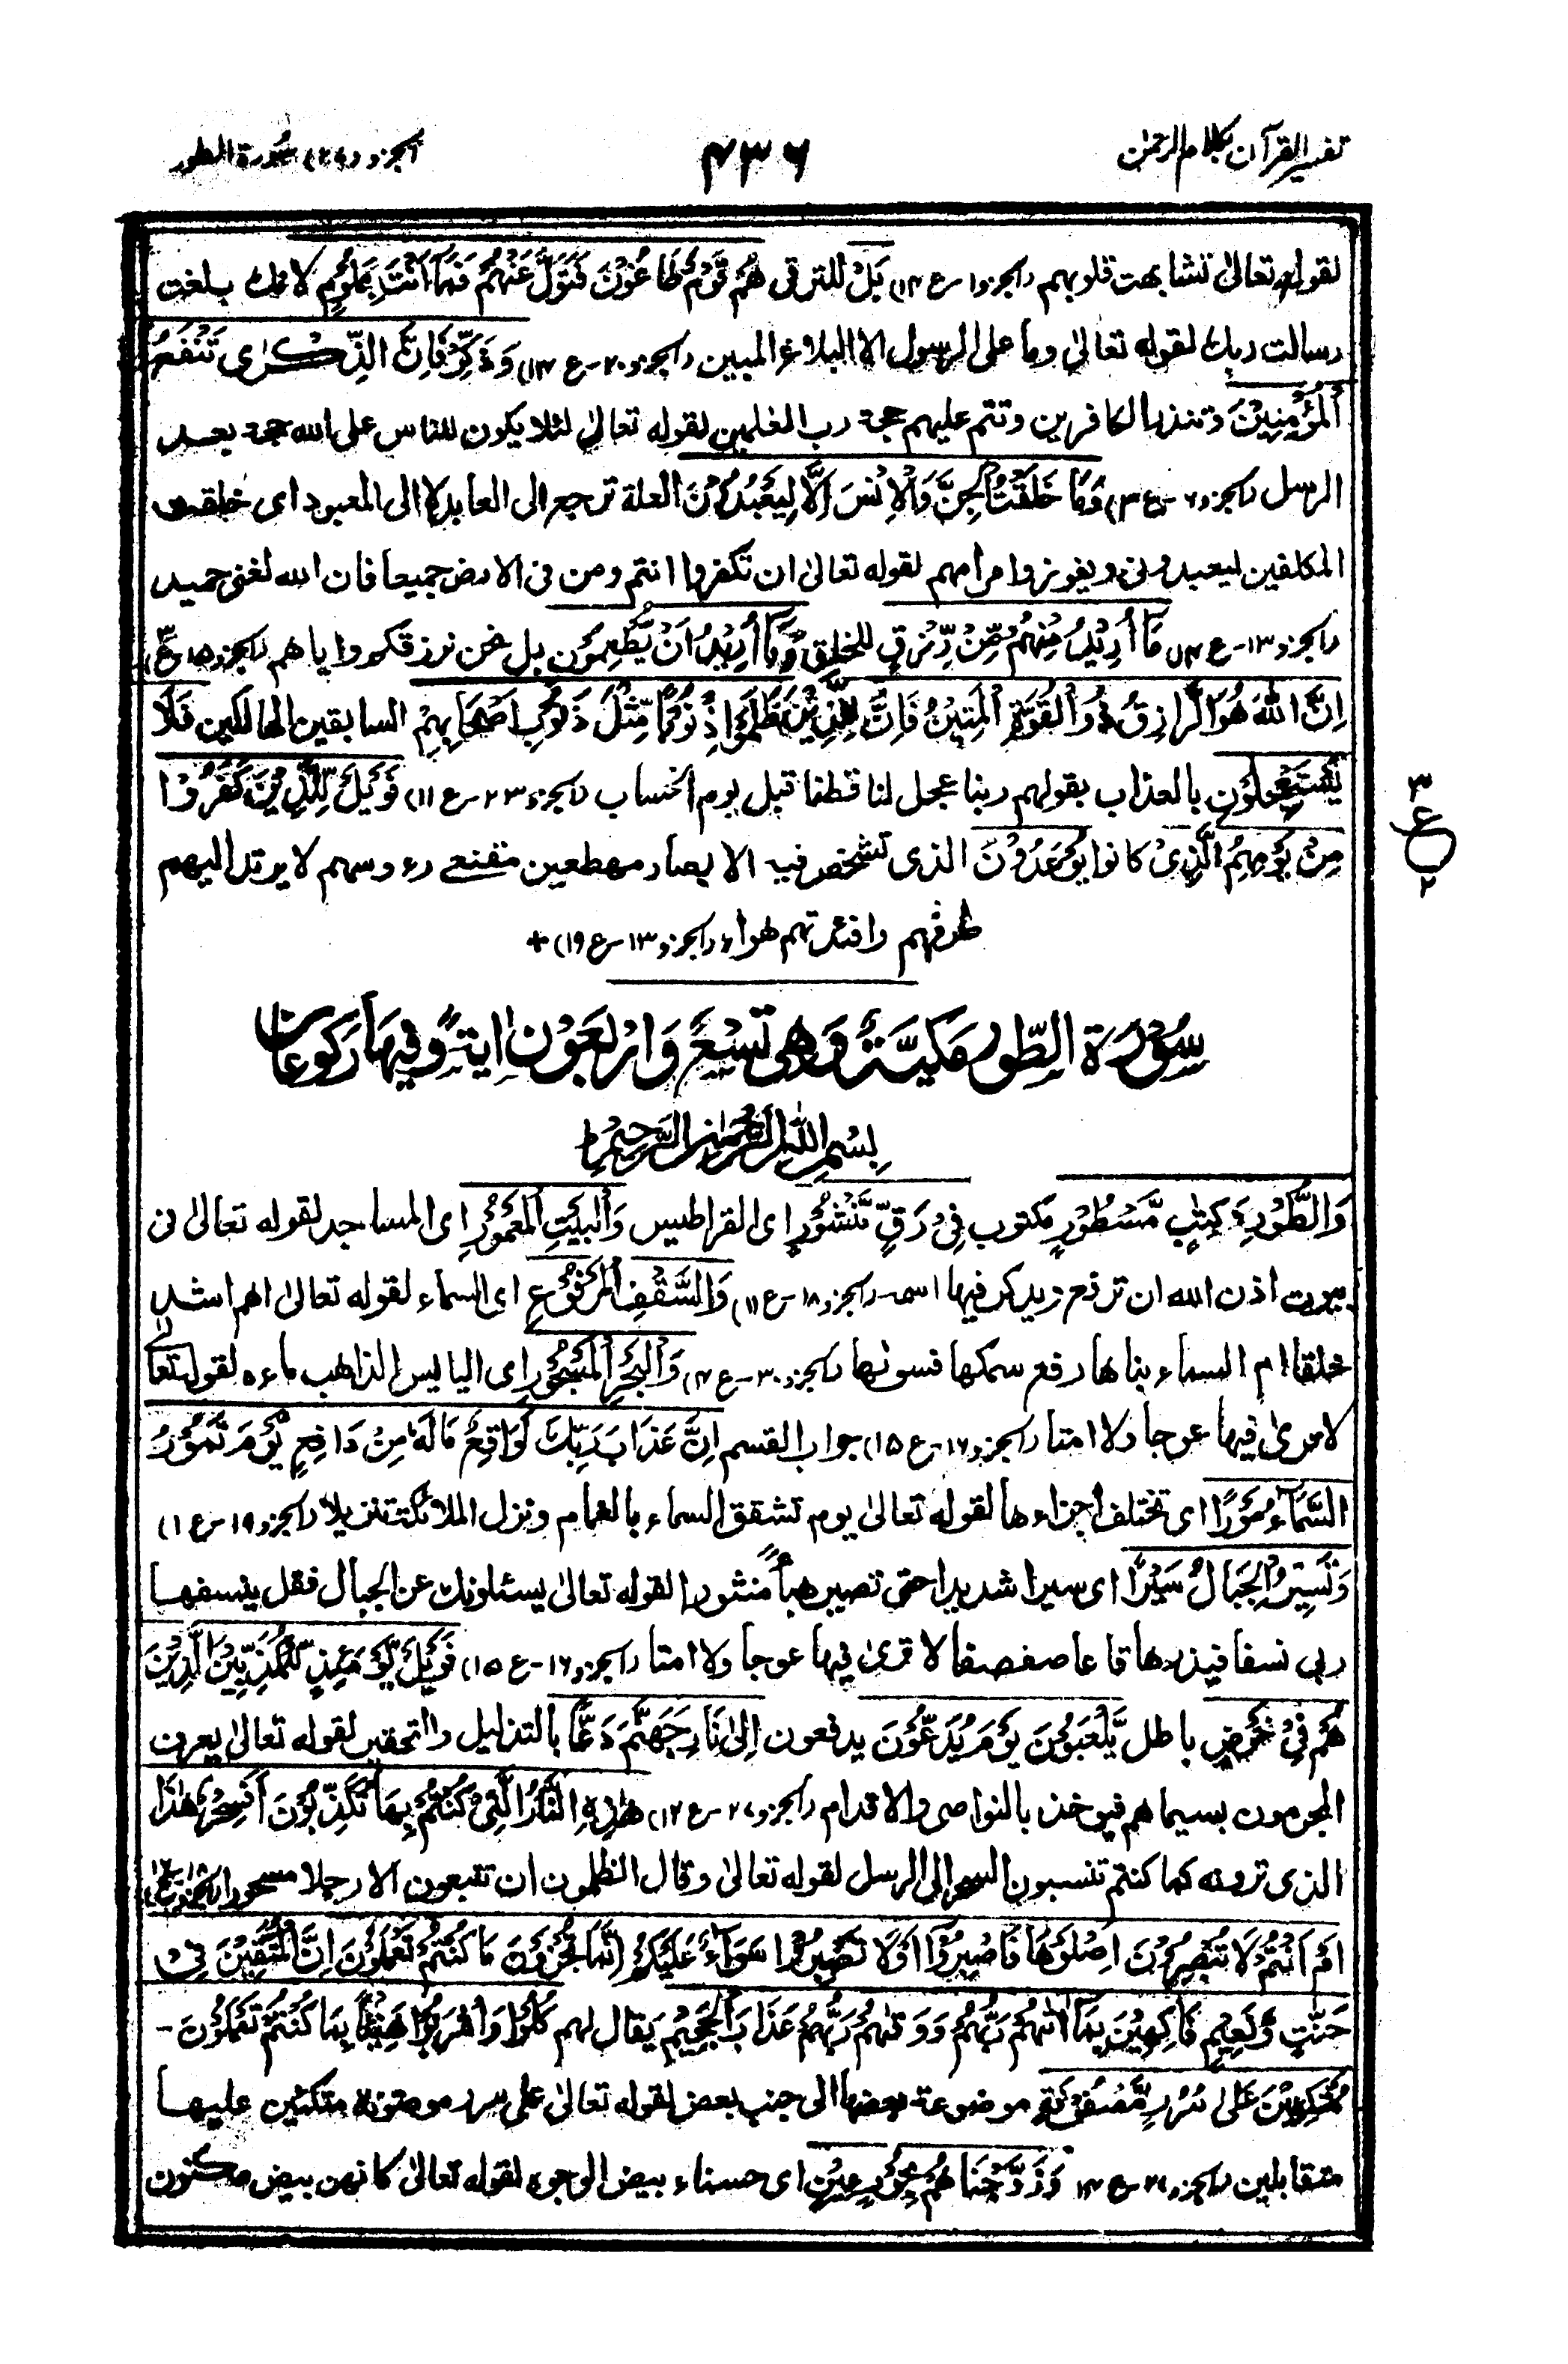 تفسیر القرآن بکلام الرحمن ۴۳۶ الجزو (۲۷) سورة الطور
لقوله تعالیٰ تشابهت قلوبهم (الجزو ۱-ع ۱۴) بَلْ للترقی هُمْ قَوْمٌ طَاغُوْنَ فَتَوَلَّ عَنْهُمْ فَمَآ اَنْتَ بِمَلُوْمٍ لانك بلغت
رسالت ربك لقوله تعالیٰ وما علی الرسول الا البلاغ المبین (الجزو ۲۰-ع ۱۴) وَذَكِّرْ فَاِنَّ الذِّكْرٰی تَنْفَعُ
الْمُؤْمِنِيْنَ وتنذر الکافرین وتتم علیهم حجة رب العٰلمین لقوله تعالیٰ لئلا یکون للناس علی الله حجة بعد
الرسل (الجزو ۶-ع ۳) وَمَا خَلَقْتُ الْجِنَّ وَالْاِنْسَ اِلَّا لِيَعْبُدُوْنَ العلة ترجع الی العابد لا الی المعبود ای خلقت
المکلفین لیعبدونی ویفوزوا مرامهم لقوله تعالیٰ ان تکفروا انتم ومن فی الارض جمیعا فان الله لغنی حمید
(الجزو ۱۳-ع ۱۴) مَآ اُرِيْدُ مِنْهُمْ مِّنْ رِّزْقٍ للخلق وَّمَآ اُرِيْدُ اَنْ يُّطْعِمُوْنِ بل نحن نرزقکم وایاهم (الجزو ۱۵-ع)
اِنَّ اللّٰهَ هُوَ الرَّازِقُ ذُو الْقُوَّةِ الْمَتِيْنُ فَاِنَّ لِلَّذِيْنَ ظَلَمُوْا ذَنُوْبًا مِّثْلَ ذَنُوْبِ اَصْحَابِهِمْ السابقین الهالکین فَلَا
يَسْتَعْجِلُوْنِ بالعذاب بقولهم ربنا عجل لنا قطنا قبل یوم الحساب (الجزو ۲۳-ع ۱۱) فَوَيْلٌ لِّلَّذِيْنَ كَفَرُوْا
مِنْ يَّوْمِهِمُ الَّذِیْ کانوا يُوْعَدُوْنَ الذی تشخص فیه الابصار مهطعین مقنعے رءوسهم لا یرتد الیهم
طرفهم وافئدتهم هواء (الجزو ۱۳-ع ۱۹) +
۳
ع
۲
سُوْرَةُ الطُّوْرِ مَكِّيَّةٌ وَهِیَ تِسْعٌ وَّاَرْبَعُوْنَ اٰيَةً وَّفِيْهَا رَكُوْعَانِ
بِسْمِ اللّٰهِ الرَّحْمٰنِ الرَّحِيْمِ
وَالطُّوْرِ وَكِتٰبٍ مَّسْطُوْرٍ مکتوب فِیْ رَقٍّ مَّنْشُوْرٍ ای القراطیس وَالْبَيْتِ الْمَعْمُوْرِ ای المساجد لقوله تعالیٰ فی
بیوت اذن الله ان ترفع ویذکر فیها اسمه (الجزو ۱۸-ع ۱۱) وَالسَّقْفِ الْمَرْفُوْعِ ای السماء لقوله تعالیٰ اهم اشد
خلقا ام السماء بناها رفع سمکها فسوٰها (الجزو ۳۰-ع ۴) وَالْبَحْرِ الْمَسْجُوْرِ ای الیابس الذاهب ماءه لقوله تعالیٰ
لا تریٰ فیها عوجا ولا امتا (الجزو ۱۶-ع ۱۵) جواب القسم اِنَّ عَذَابَ رَبِّكَ لَوَاقِعٌ مَّا لَهٗ مِنْ دَافِعٍ يَّوْمَ تَمُوْرُ
السَّمَآءُ مَوْرًا ای تختلف اجزاءها لقوله تعالیٰ یوم تشقق السماء بالغمام ونزل الملائکة تنزیلا (الجزو ۱۹-ع ۱)
وَتَسِيْرُ الْجِبَالُ سَيْرًا ای سیرا شدیدا حتی تصیر هباءً منثورا لقوله تعالیٰ یسئلونك عن الجبال فقل ینسفها
ربی نسفا فیذرها قاعا صفصفا لا تریٰ فیها عوجا ولا امتا (الجزو ۱۶-ع ۱۵) فَوَيْلٌ يَّوْمَئِذٍ لِّلْمُكَذِّبِيْنَ الَّذِيْنَ
هُمْ فِیْ خَوْضٍ باطل يَّلْعَبُوْنَ يَوْمَ يُدَعُّوْنَ یدفعون اِلٰی نَارِ جَهَنَّمَ دَعًّا بالتذلیل والتحقیر لقوله تعالیٰ یعرف
المجرمون بسیماهم فیوخذ بالنواصی والاقدام (الجزو ۲۷-ع ۱۲) هٰذِهِ النَّارُ الَّتِیْ كُنْتُمْ بِهَا تُكَذِّبُوْنَ اَفَسِحْرٌ هٰذَا
الذی ترونه کما کنتم تنسبون السحر الی الرسل لقوله تعالیٰ وقال الظلمون ان تتبعون الا رجلا مسحورا
اَمْ اَنْتُمْ لَا تُبْصِرُوْنَ اِصْلَوْهَا فَاصْبِرُوْٓا اَوْ لَا تَصْبِرُوْا سَوَآءٌ عَلَيْكُمْ اِنَّمَا تُجْزَوْنَ مَا كُنْتُمْ تَعْمَلُوْنَ اِنَّ الْمُتَّقِيْنَ فِیْ
جَنّٰتٍ وَّنَعِيْمٍ فَاكِهِيْنَ بِمَآ اٰتٰهُمْ رَبُّهُمْ وَوَقٰهُمْ رَبُّهُمْ عَذَابَ الْجَحِيْمِ یقال لهم كُلُوْا وَاشْرَبُوْا هَنِيْٓئًا بِمَا كُنْتُمْ تَعْمَلُوْنَ -
مُتَّكِئِيْنَ عَلٰی سُرُرٍ مَّصْفُوْفَةٍ موضوعة بعضها الی جنب بعض لقوله تعالیٰ علی سرر موضونة متکئین علیها
متقابلین (الجزو ۲۷-ع ۱۴) وَزَوَّجْنَاهُمْ بِحُوْرٍ عِيْنٍ ای حسناء بیض الوجوه لقوله تعالیٰ کانهن بیض مکنون